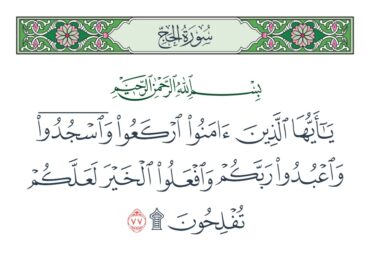 سُورَةُ الحَجِّ
بِسْمِ ٱللَّهِ ٱلرَّحْمَٰنِ ٱلرَّحِيمِ
يَـٰٓأَيُّهَا ٱلَّذِينَ ءَامَنُوا۟ ٱرْكَعُوا۟ وَٱسْجُدُوا۟
وَٱعْبُدُوا۟ رَبَّكُمْ وَٱفْعَلُوا۟ ٱلْخَيْرَ لَعَلَّكُمْ
تُفْلِحُونَ ۩ ٧٧